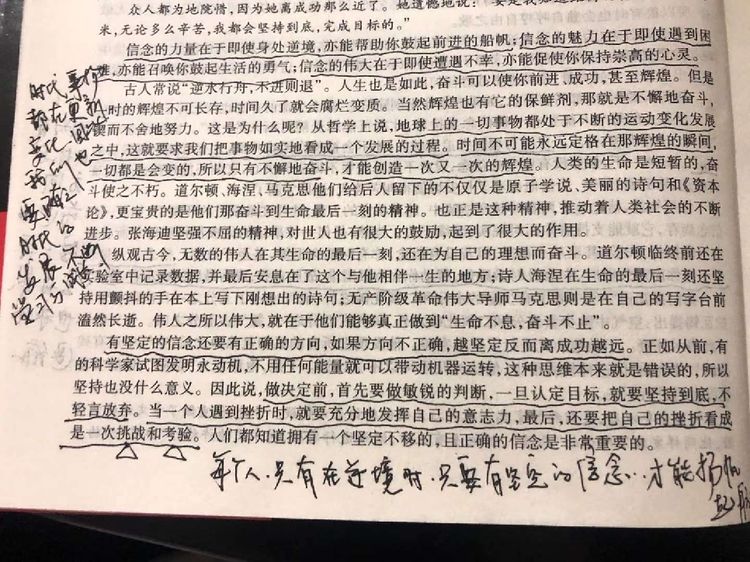 众人都为她惋惜,因为她离成功那么近了。她遗憾地说:
米,无论多么辛苦,我都会坚持到底,完成目标的。”
信念的力量在于即使身处逆境,亦能帮助你鼓起前进的船帆;信念的魅力在于即使遇到困
难,亦能召唤你鼓起生活的勇气;信念的伟大在于即使遭遇不幸,亦能促使你保持崇高的心灵。
古人常说“逆水行舟,不进则退”。人生也是如此,奋斗可以使你前进,成功,甚至辉煌。但是
时的辉煌不可长存,时间久了就会腐烂变质。当然辉煌也有它的保鲜剂,那就是不懈地奋斗,
锲而不舍地努力。这是为什么呢?从哲学上说,地球上的一切事物都处于不断的运动变化发展
之中,这就要求我们把事物如实地看成一个发展的过程。时间不可能永远定格在那辉煌的瞬间,
一切都是会变的,所以只有不懈地奋斗,才能创造一次又一次的辉煌。人类的生命是短暂的,奋
斗使之不朽。道尔顿、海涅、马克思他们给后人留下的不仅仅是原子学说、美丽的诗句和《资本
论》,更宝贵的是他们那奋斗到生命最后一刻的精神。也正是这种精神,推动着人类社会的不断
进步。张海迪坚强不屈的精神,对世人也有很大的鼓励,起到了很大的作用。
纵观古今,无数的伟人在其生命的最后一刻,还在为自己的理想而奋斗。道尔顿临终前还在
实验室中记录数据,并最后安息在了这个与他相伴一生的地方;诗人海涅在生命的最后一刻还坚
持用颤抖的手在本上写下刚想出的诗句;无产阶级革命伟大导师马克思则是在自己的写字台前
溘然长逝。伟人之所以伟大,就在于他们能够真正做到“生命不息,奋斗不止”。
有坚定的信念还要有正确的方向,如果方向不正确,越坚定反而离成功越远。正如从前,有
的科学家试图发明永动机,不用任何能量就可以带动机器运转,这种思维本来就是错误的,所以
坚持也没什么意义。因此说,做决定前,首先要做敏锐的判断,一旦认定目标,就要坚持到底,不
轻言放弃。当一个人遇到挫折时,就要充分地发挥自己的意志力,最后,还要把自己的挫折看成
是一次挑战和考验。人们都知道拥有一个坚定不移的,且正确的信念是非常重要的。
每个人,只有在逆境时,只要有坚定的信念,才能扬帆
起航
时代
都在更新
变化
我们
要
时代的
发展
学习